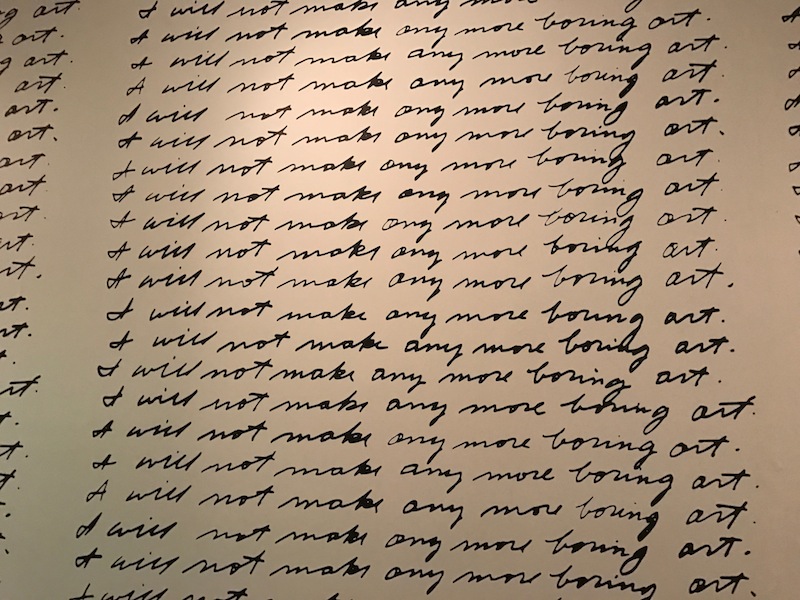 art.
art.
art.
art.
art.
art.
art.
art.
art.
I will not make any more
I will not make any more boring art.
I will not make any more boring art.
I will not make any more boring art.
I will not make any more boring art.
I will not make any more boring art.
I will not make any more boring art.
I will not make any more boring art.
I will not make any more boring art.
I will not make any more boring art.
I will not make any more boring art.
I will not make any more boring art.
I will not make any more boring art.
I will not make any more boring art.
I will not make any more boring art.
I will not make any more boring art.
I will not make any more boring art.
I will not make any more boring art.
I will not make any more boring art.
I will not make any more boring art.
I will not